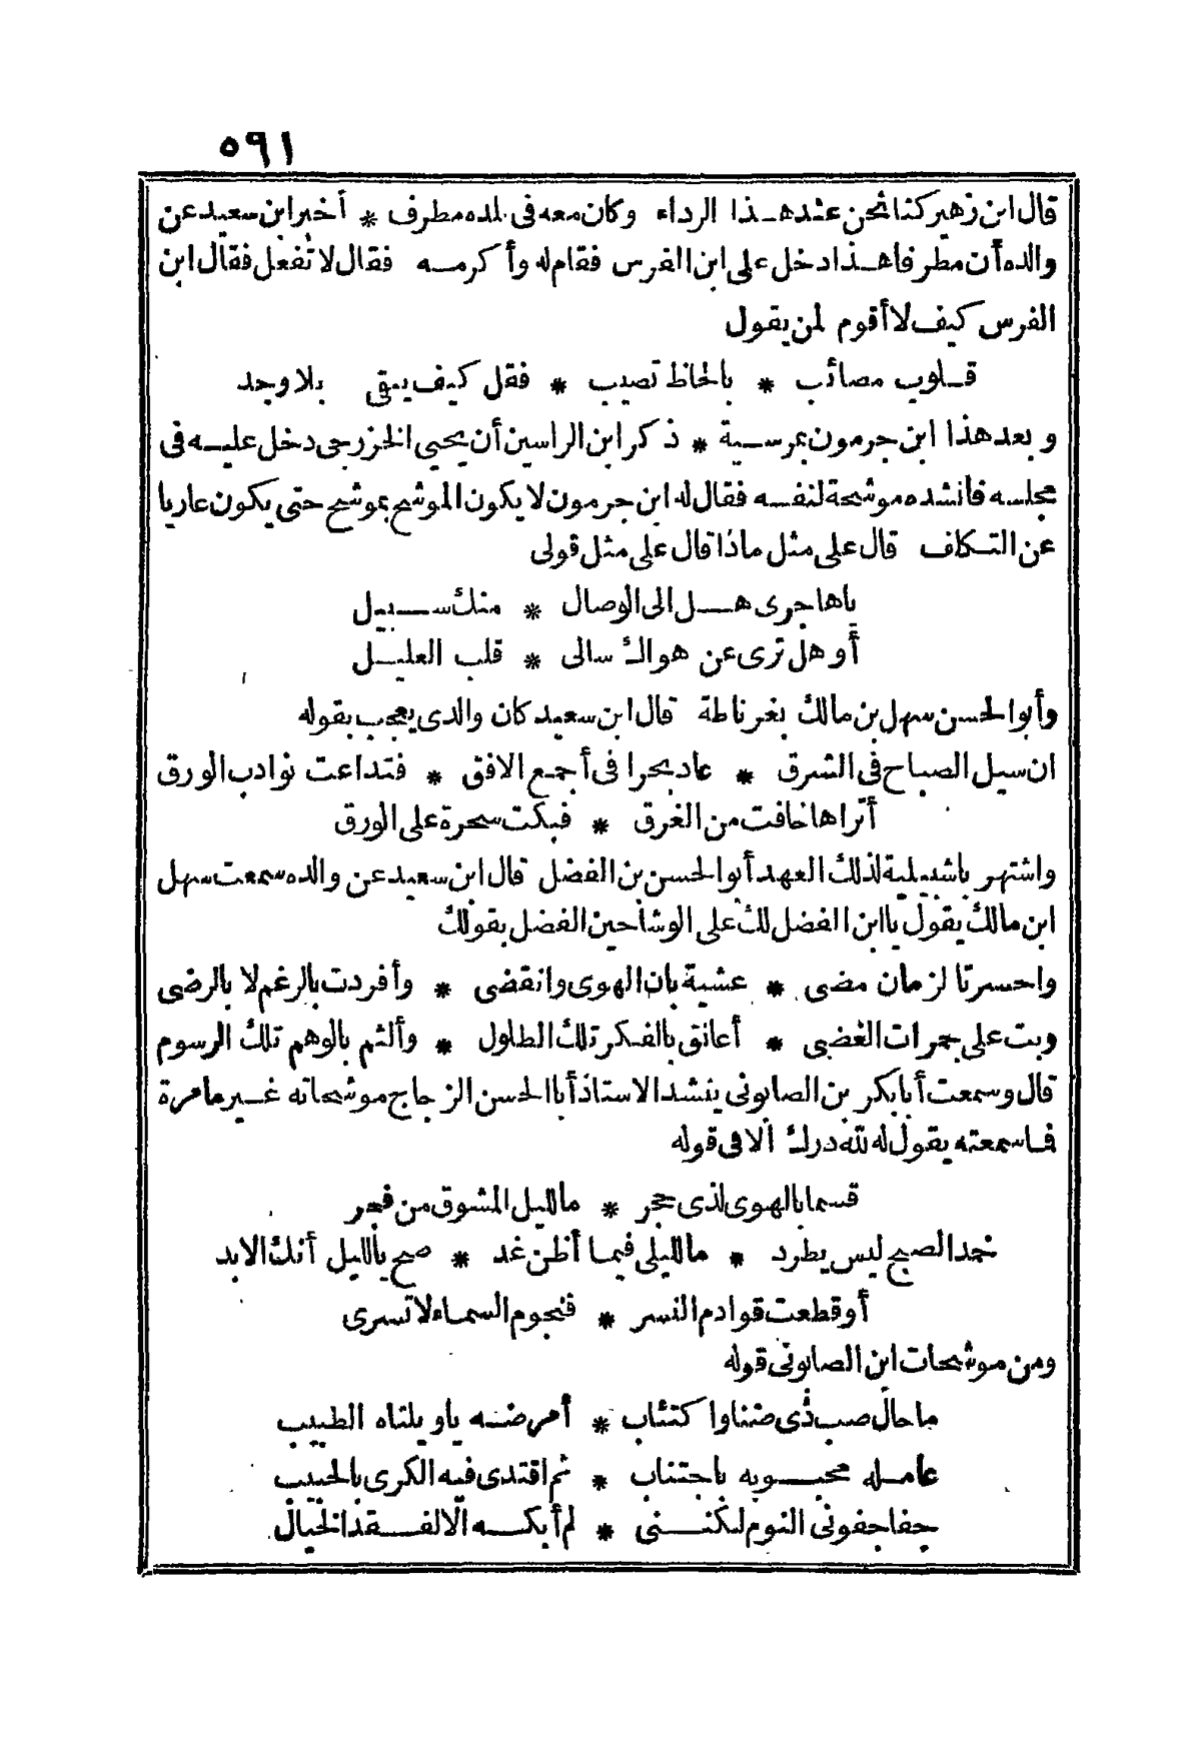 ٥٩١
قال ابن زهير كنا نحن عند هذا الرداء وكان معه فى بلده مطرف * أخبر ابن سعيد عن
والده أن مطرفا هذا دخل على ابن الفرس فقام له وأكرمه فقال لا تفعل فقال ابن
الفرس كيف لا أقوم لمن يقول
قلوب مصائب * بالحاظ تصيب * فقل كيف يبقى بلا وجد
وبعد هذا ابن جرمون بمرسية * ذكر ابن الراسين أن يحيى الخزرجى دخل عليه فى
مجلسه فانشده موشحة لنفسه فقال له ابن جرمون لا يكون الموشح بموشح حتى يكون عاريا
عن التكاف قال على مثل ماذا قال على مثل قولى
ياهاجرى هل الى الوصال * منك سبيل
أو هل ترى عن هواك سالى * قلب العليل
وأبو الحسن سهل بن مالك بغرناطة قال ابن سعيد كان والدى يعجب بقوله
ان سيل الصباح فى الشرق * عاد بحرا فى أجمع الافق * فتداعت نوادب الورق
أتراها خافت من الغرق * فبكت سحرة على الورق
واشتهر باشبيلية لذلك العهد أبو الحسن بن الفضل قال ابن سعيد عن والده سمعت سهل
ابن مالك يقول يا ابن الفضل لك على الوشاحين الفضل بقولك
واحسرتا لزمان مضى * عشية بان الهوى وانقضى * وأفردت بالرغم لا بالرضى
وبت على جمرات الغضى * أعانق بالفكر تلك الطلول * وألثم بالوهم تلك الرسوم
قال وسمعت أبا بكر بن الصابونى ينشد الاستاذ أبا الحسن الزجاج موشحاته غير ما مرة
فما سمعته يقول له لله درك الا فى قوله
قسما بالهوى لذى حجر * ما لليل المشوق من فجر
خمد الصبح ليس يطرد * ما لليلى فيما أظن غد * صح ياليل أنك الابد
أو قطعت قوادم النسر * فنجوم السماء لا تسرى
ومن موشحات ابن الصابونى قوله
ما حال صب ذى ضنا واكتئاب * أمرضه ياويلتاه الطبيب
عامله محبوبه باجتناب * ثم اقتدى فيه الكرى بالحبيب
جفا جفونى النوم لكننى * لم أبكه الا لفقد الخيال